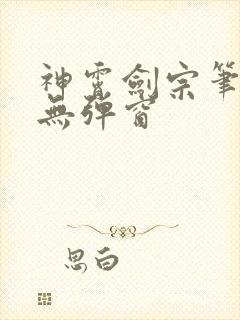 神霄劍宗筆
無彈窗
思白